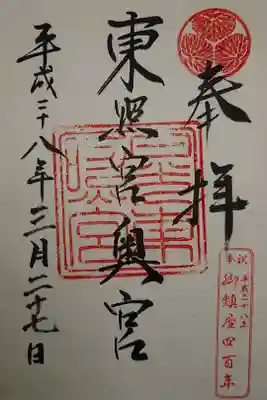 奉拝
奉祝
平成二十八年
御鎮座四百年
東照宮奥宮
平成二十八年三月二十七日